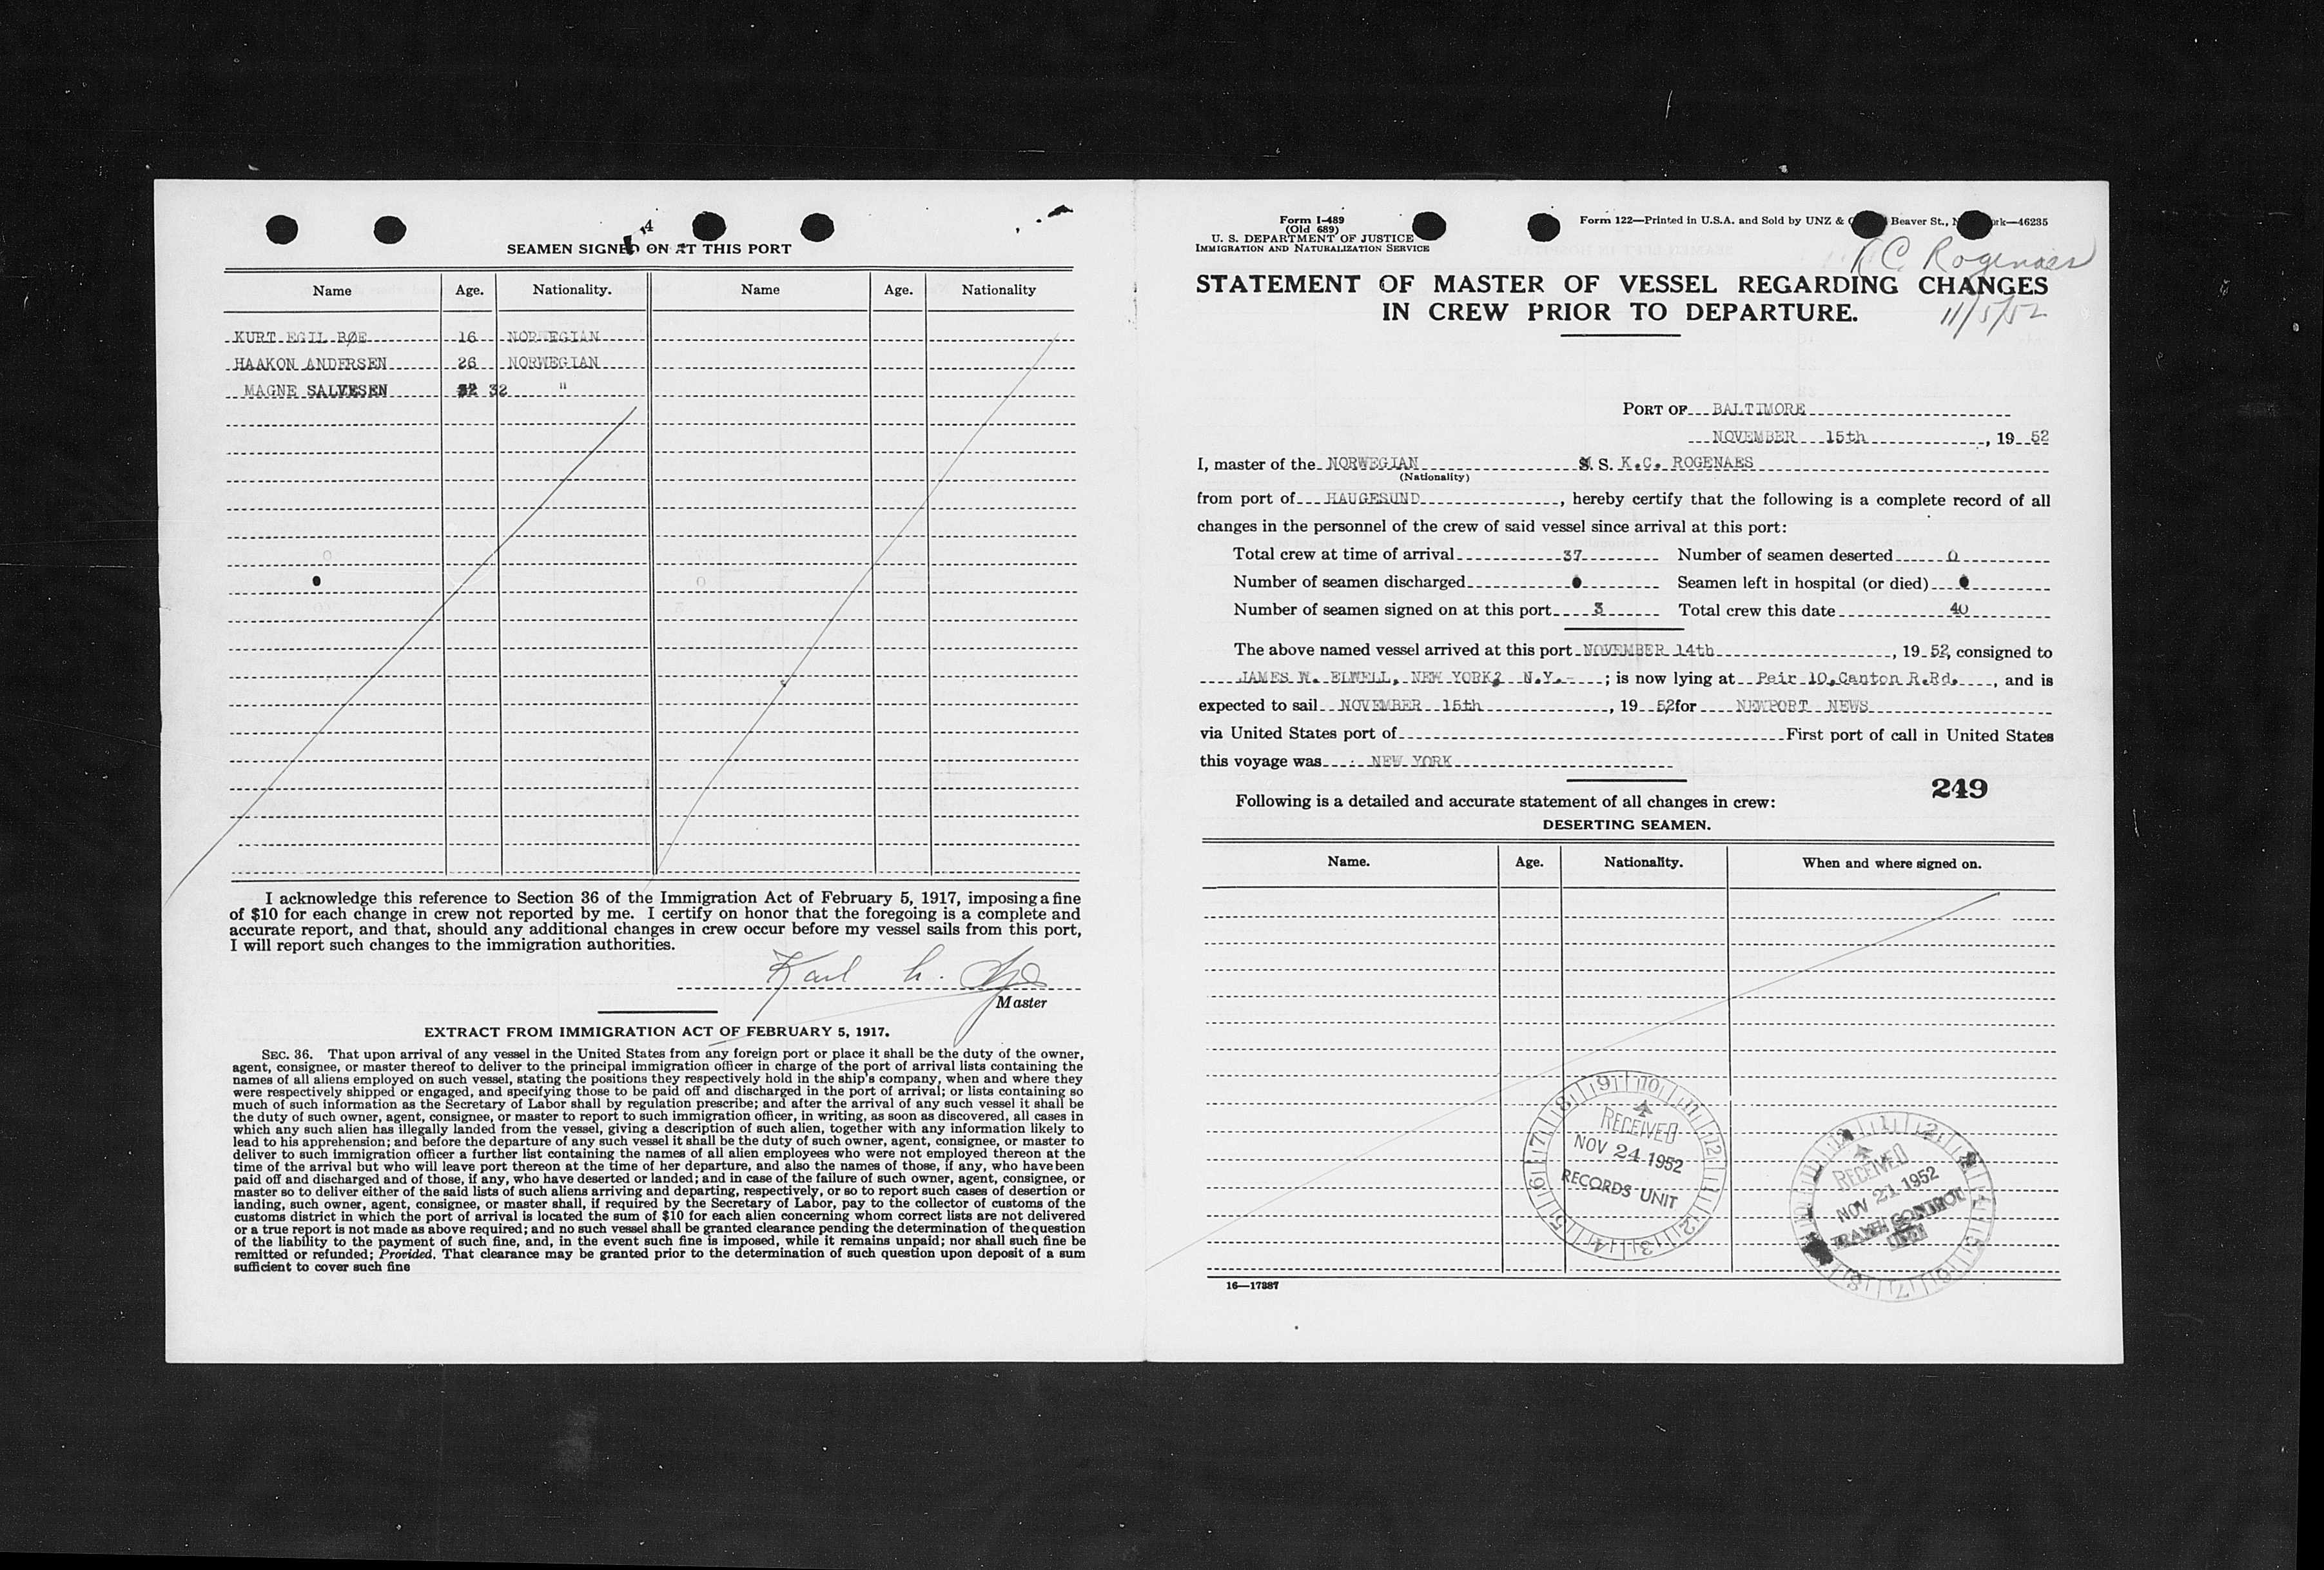 4
SEAMEN SIGNED ON AT THIS PORT
Name Age. Nationality. Name Age. Nationality
KURT EGIL BØE 16 NORWEGIAN
HAAKON ANDERSEN 26 NORWEGIAN
MAGNE SALVESEN 32 "
I acknowledge this reference to Section 36 of the Immigration Act of February 5, 1917, imposing a fine
of $10 for each change in crew not reported by me. I certify on honor that the foregoing is a complete and
accurate report, and that, should any additional changes in crew occur before my vessel sails from this port,
I will report such changes to the immigration authorities.
Karl h.
Master
EXTRACT FROM IMMIGRATION ACT OF FEBRUARY 5, 1917.
SEC. 36. That upon arrival of any vessel in the United States from any foreign port or place it shall be the duty of the owner,
agent, consignee, or master thereof to deliver to the principal immigration officer in charge of the port of arrival lists containing the
names of all aliens employed on such vessel, stating the positions they respectively hold in the ship's company, when and where they
were respectively shipped or engaged, and specifying those to be paid off and discharged in the port of arrival; or lists containing so
much of such information as the Secretary of Labor shall by regulation prescribe; and after the arrival of any such vessel it shall be
the duty of such owner, agent, consignee, or master to report to such immigration officer, in writing, as soon as discovered, all cases in
which any such alien has illegally landed from the vessel, giving a description of such alien, together with any information likely to
lead to his apprehension; and before the departure of any such vessel it shall be the duty of such owner, agent, consignee, or master to
deliver to such immigration officer a further list containing the names of all alien employees who were not employed thereon at the
time of the arrival but who will leave port thereon at the time of her departure, and also the names of those, if any, who have been
paid off and discharged and of those, if any, who have deserted or landed; and in case of the failure of such owner, agent, consignee, or
master so to deliver either of the said lists of such aliens arriving and departing, respectively, or so to report such cases of desertion or
landing, such owner, agent, consignee, or master shall, if required by the Secretary of Labor, pay to the collector of customs of the
customs district in which the port of arrival is located the sum of $10 for each alien concerning whom correct lists are not delivered
or a true report is not made as above required; and no such vessel shall be granted clearance pending the determination of the question
of the liability to the payment of such fine, and, in the event such fine is imposed, while it remains unpaid; nor shall such fine be
remitted or refunded; Provided. That clearance may be granted prior to the determination of such question upon deposit of a sum
sufficient to cover such fine
Form I-489
(Old 689)
U. S. DEPARTMENT OF JUSTICE
IMMIGRATION AND NATURALIZATION SERVICE
Form 122—Printed in U.S.A. and Sold by UNZ & Beaver St., 46235
K C. Rogenaes
STATEMENT OF MASTER OF VESSEL REGARDING CHANGES
IN CREW PRIOR TO DEPARTURE.
11/5/52
PORT OF BALTIMORE
NOVEMBER 15th, 19 52
I, master of the NORWEGIAN M. S. K.C. ROGENAES
(Nationality)
from port of HAUGESUND, hereby certify that the following is a complete record of all
changes in the personnel of the crew of said vessel since arrival at this port:
Total crew at time of arrival 37 Number of seamen deserted 0
Number of seamen discharged 0 Seamen left in hospital (or died) 0
Number of seamen signed on at this port 3 Total crew this date 40
The above named vessel arrived at this port NOVEMBER 14th, 19 52, consigned to
JAMES W. ELWELL, NEW YORK, N.Y.- ; is now lying at Peir 10.Canton R.Rd., and is
expected to sail NOVEMBER 15th, 19 52 for NEWPORT NEWS
via United States port of First port of call in United States
this voyage was NEW YORK
249
Following is a detailed and accurate statement of all changes in crew:
DESERTING SEAMEN.
Name. Age. Nationality. When and where signed on.
RECEIVED
NOV 24 1952
RECORDS UNIT
RECEIVED
NOV 21 1952
TRAVEL CONTROL
UNIT
16—17387